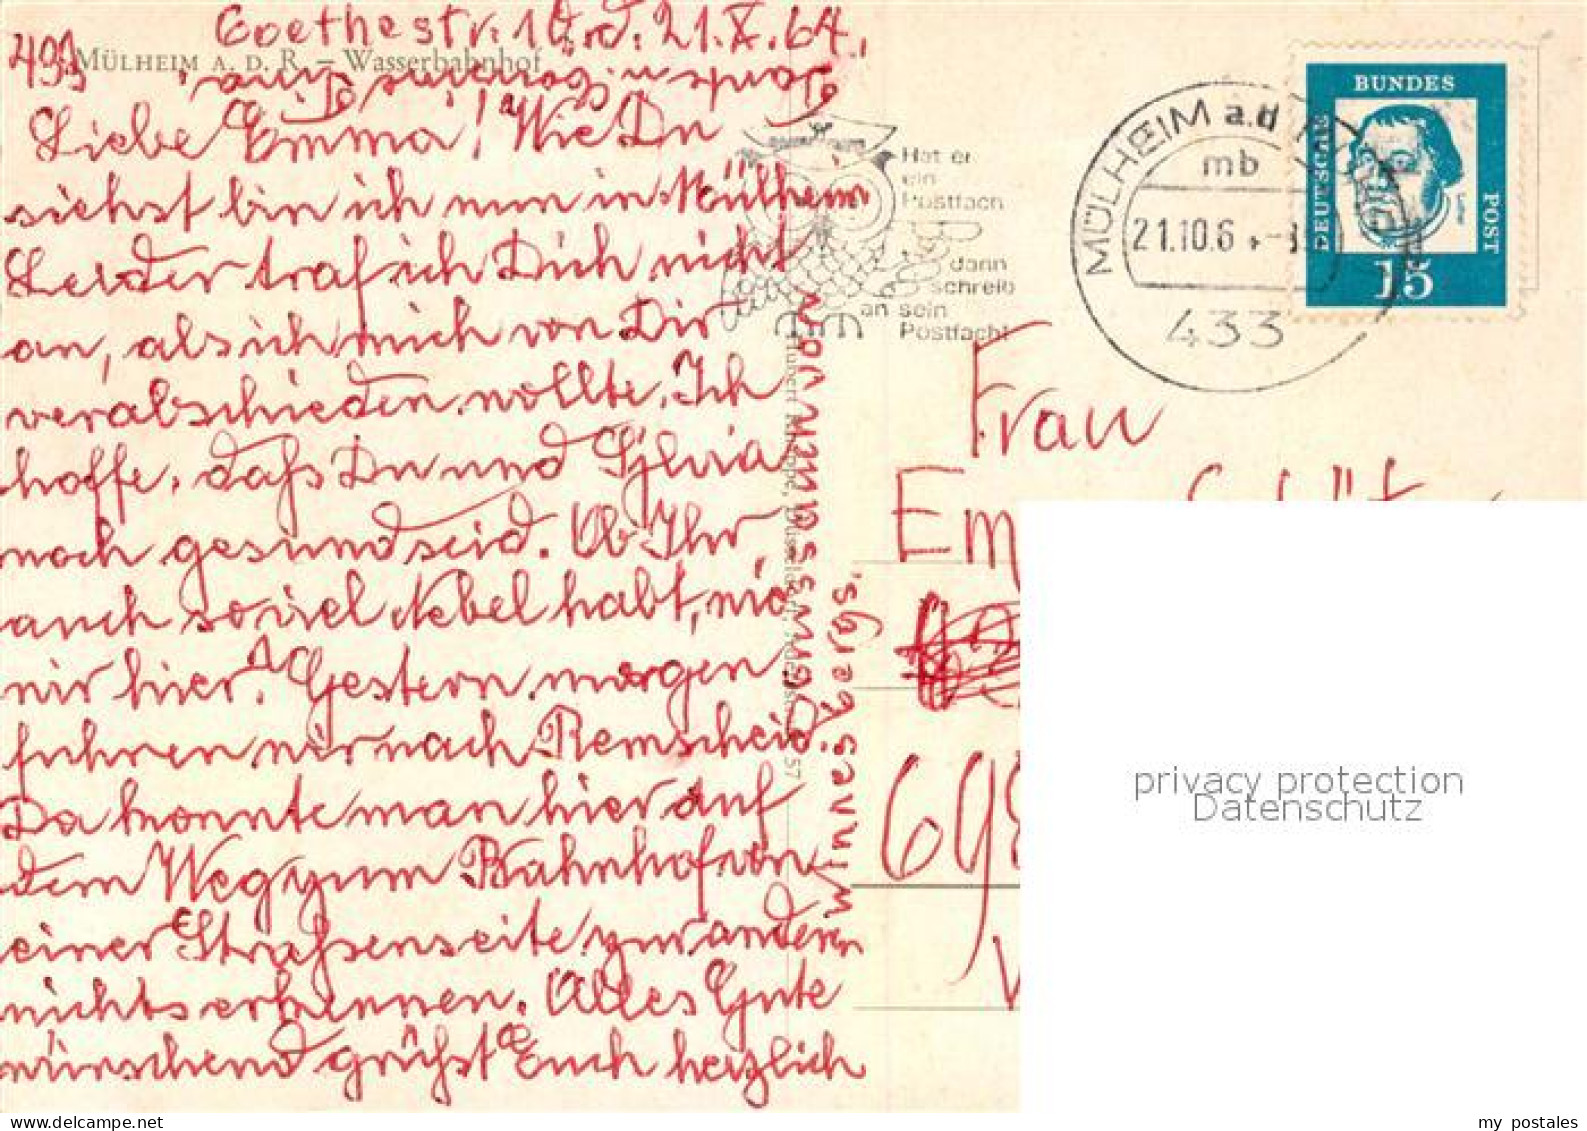 Goethestr. 10. d. 21.X.64.
433 MÜLHEIM A. D. R. – Wasserbahnhof
Liebe Emma! Wie Du
siehst bin ich nun in Mülheim
Leider traf ich Dich nicht
an, als ich mich von Dir
verabschieden wollte. Ich
hoffe, daß Du und Sylvia
noch gesund seid. Ob Ihr
auch so viel Nebel habt, wie
wir hier. Gestern morgen
fuhren wir nach Remscheid
Da konnte man hier auf
dem Weg zum Bahnhof von
einer Straßenseite zur andern
nichts erkennen. Alles Gute
wünschend grüßt Euch herzlich
Tante
Anna
Winnesberge.
Hubert Düsseldorf, 57
Hat er
ein
Postfach
dann
schreib
an sein
Postfach!
MÜLHEIM a.d
mb
21.10.6
433
DEUTSCHE
BUNDES
POST
15
Frau
Em
698
privacy protection
Datenschutz
my postales